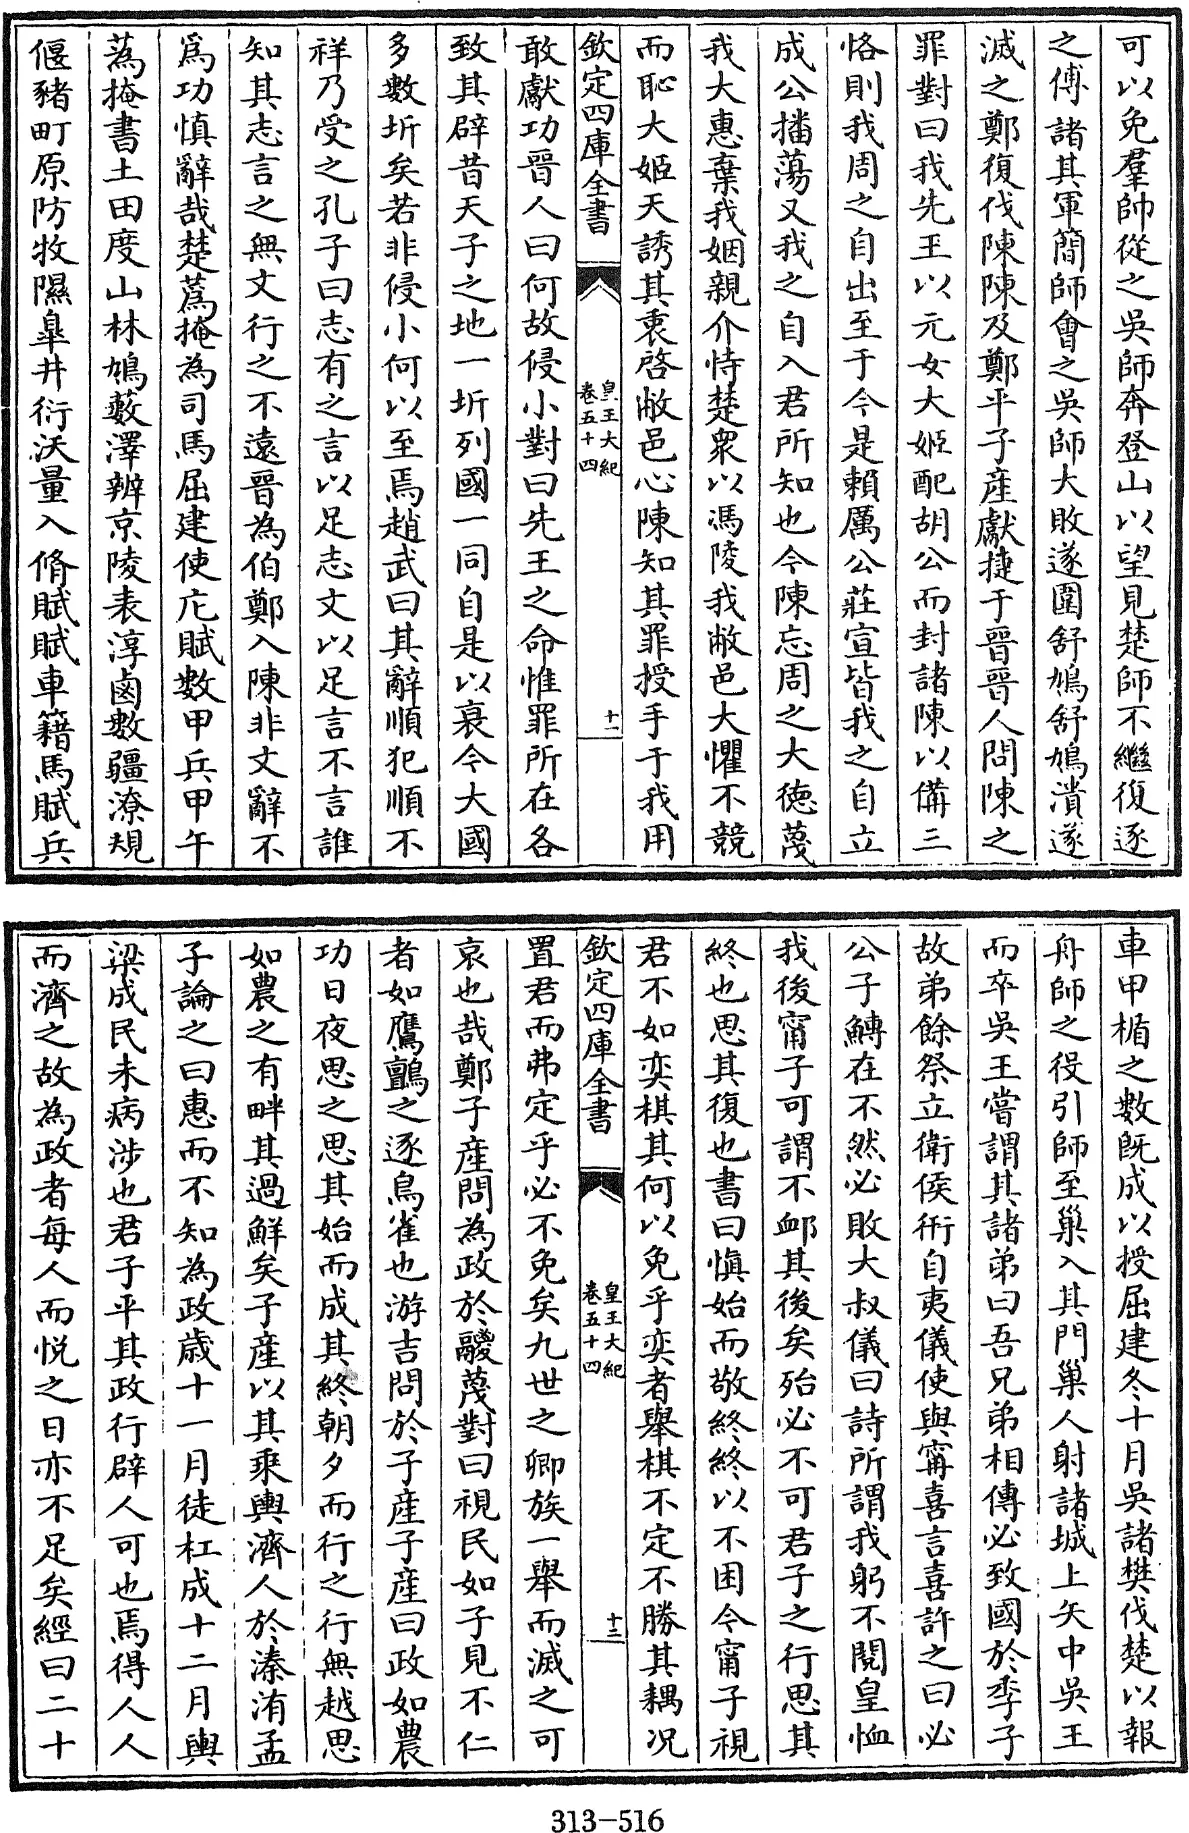 可以免羣帥從之吳師奔登山以望見楚師不繼復逐
之傅諸其軍簡師會之吳師大敗遂圍舒鳩舒鳩潰遂
滅之鄭復伐陳陳及鄭平子產獻捷于晉晉人問陳之
罪對曰我先王以元女大姬配胡公而封諸陳以備三
恪則我周之自出至于今是賴厲公莊宣皆我之自立
成公播蕩又我之自入君所知也今陳忘周之大徳蔑
我大惠棄我姻親介恃楚衆以馮陵我敝邑大懼不競
而恥大姬天誘其衷啓敝邑心陳知其罪授手于我用
欽定四庫全書
皇王大紀
卷五十四
十一
敢獻功晉人曰何故侵小對曰先王之命惟罪所在各
致其辟昔天子之地一圻列國一同自是以衰今大國
多數圻矣若非侵小何以至焉趙武曰其辭順犯順不
祥乃受之孔子曰志有之言以足志文以足言不言誰
知其志言之無文行之不遠晉為伯鄭入陳非文辭不
爲功慎辭哉楚蔿掩為司馬屈建使庀賦數甲兵甲午
蔿掩書土田度山林鳩藪澤辨京陵表淳鹵數疆潦規
偃豬町原防牧隰臯井衍沃量入脩賦賦車籍馬賦兵
車甲楯之數既成以授屈建冬十月吳諸樊伐楚以報
舟師之役引師至巢入其門巢人射諸城上矢中吳王
而卒吳王嘗謂其諸弟曰吾兄弟相傳必致國於季子
故弟餘祭立衛侯衎自夷儀使與甯喜言喜許之曰必
公子鱄在不然必敗大叔儀曰詩所謂我躬不閱皇恤
我後甯子可謂不䘏其後矣殆必不可君子之行思其
終也思其復也書曰慎始而敬終終以不困今甯子視
君不如奕棋其何以免乎奕者舉棋不定不勝其耦况
欽定四庫全書
皇王大紀
卷五十四
十二
置君而弗定乎必不免矣九世之卿族一舉而滅之可
哀也哉鄭子產問為政於鬷蔑對曰視民如子見不仁
者如鷹鸇之逐鳥雀也游吉問於子產子產曰政如農
功日夜思之思其始而成其終朝夕而行之行無越思
如農之有畔其過鮮矣子產以其乘輿濟人於溱洧孟
子論之曰惠而不知為政歳十一月徒杠成十二月輿
梁成民未病涉也君子平其政行辟人可也焉得人人
而濟之故為政者每人而悅之日亦不足矣經曰二十
313-516